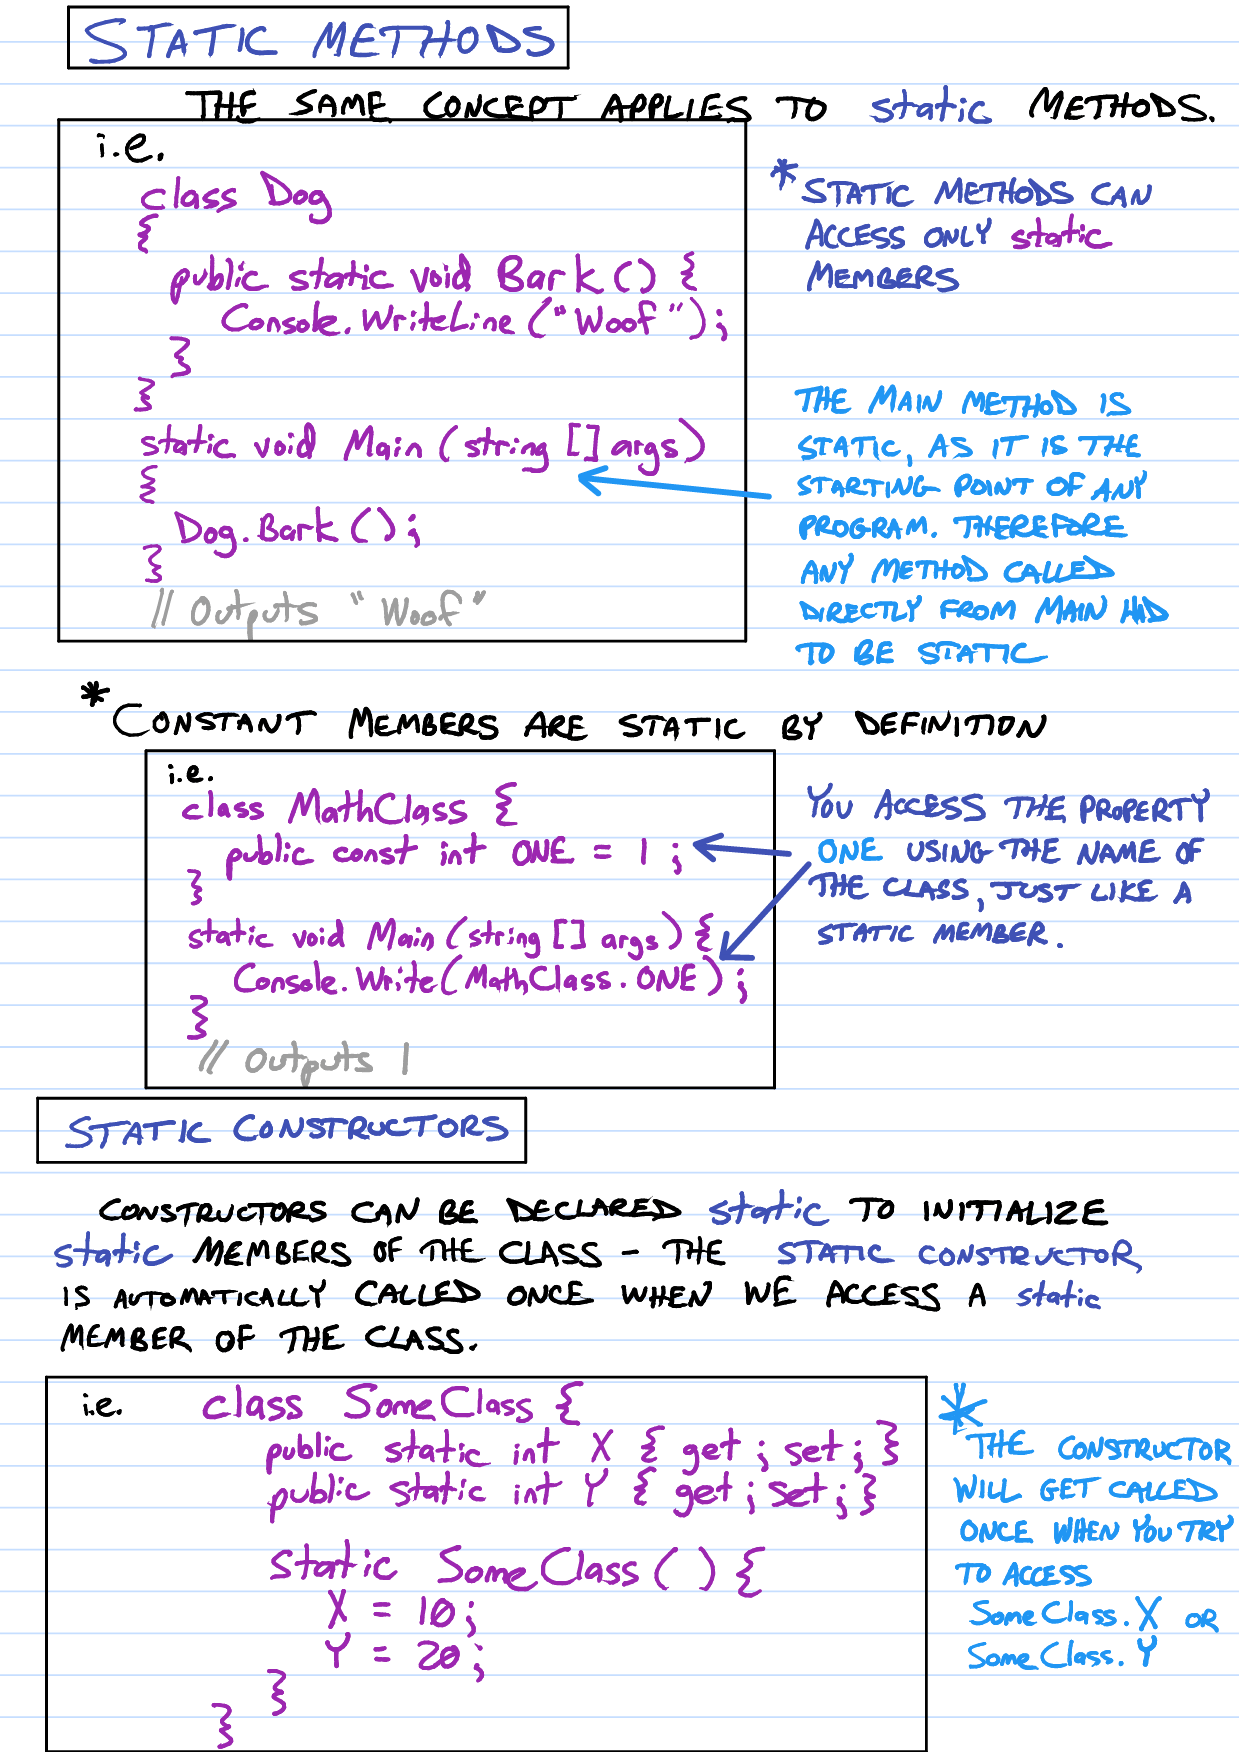 STATIC METHODS
THE SAME CONCEPT APPLIES TO static METHODS.
i.e.
class Dog
{
public static void Bark () {
Console.WriteLine ("Woof");
}
}
static void Main (string [] args)
{
Dog.Bark ();
}
// Outputs "Woof"
* STATIC METHODS CAN
ACCESS ONLY static
MEMBERS
THE MAIN METHOD IS
STATIC, AS IT IS THE
STARTING POINT OF ANY
PROGRAM. THEREFORE
ANY METHOD CALLED
DIRECTLY FROM MAIN HAD
TO BE STATIC
* CONSTANT MEMBERS ARE STATIC BY DEFINITION
i.e.
class MathClass {
public const int ONE = 1 ;
}
static void Main (string [] args) {
Console.Write (MathClass.ONE) ;
}
// Outputs 1
YOU ACCESS THE PROPERTY
ONE USING THE NAME OF
THE CLASS, JUST LIKE A
STATIC MEMBER.
STATIC CONSTRUCTORS
CONSTRUCTORS CAN BE DECLARED static TO INITIALIZE
static MEMBERS OF THE CLASS - THE STATIC CONSTRUCTOR
IS AUTOMATICALLY CALLED ONCE WHEN WE ACCESS A static
MEMBER OF THE CLASS.
i.e. class SomeClass {
public static int X { get ; set ; }
public static int Y { get ; set ; }
static SomeClass () {
X = 10 ;
Y = 20 ;
}
}
* THE CONSTRUCTOR
WILL GET CALLED
ONCE WHEN YOU TRY
TO ACCESS
SomeClass.X OR
SomeClass.Y